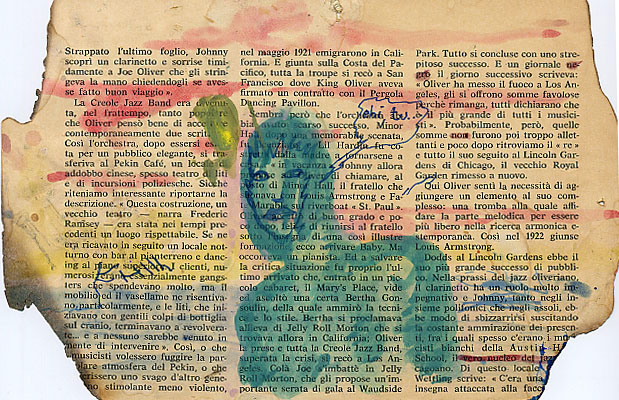 Strappato l'ultimo foglio, Johnny
scoprì un clarinetto e sorrise timi-
damente a Joe Oliver che gli strin-
geva la mano chiedendogli se aves-
se fatto buon viaggio ».
La Creole Jazz Band era divenu-
ta, nel frattempo, tanto popo
che Oliver pensò bene di acce
contemporaneamente due scrit
Così l'orchestra, dopo essersi es
ta per un pubblico elegante, si tra-
sferiva al Pekin Café, un locale
addobbo cinese, spesso teatro di
e di incursioni poliziesche. Sic
riteniamo interessante riportarne la
descrizione. « Questa costruzione, un
vecchio teatro — narra Frederic
Ramsey — era stata nei tempi pre-
cedenti un luogo rispettabile. Se n'
era ricavato in seguito un locale not-
turno con bar al pianterreno e danc-
ing al clienti, nu-
merosi, essenzialmente gangs-
ters che spendevano molto, ma i
mobilio ed il vasellame ne risentiva-
no particolarmente, e le liti, che ini-
ziavano con gentili colpi di bottiglia
sul cranio, terminavano a revolvera-
te... e a nessuno sarebbe venuto in
mente di intervenire ». Così, o che
musicisti volessero fuggire la par-
colare atmosfera del Pekin, o che
cercassero uno svago d'altro gene-
stimolante meno violento,
nel maggio 1921 emigrarono in Cali-
fornia. E giunta sulla Costa del Pa-
cifico, tutta la troupe si recò a San
Francisco dove King Oliver aveva
firmato un contratto con il Pergola
Dancing Pavillon.
però che l'orche
successo. Minor
memorabile scenata,
Lil Hardin
tornarsene a
Johnny allora
chiamare, al
Hall, il fratello che
Louis Armstrong e Fa-
Marable sul riverboat « St. Paul ».
di buon grado e po-
riunirsi al fratello
così illustre
formazione, ecco arrivare Baby. Ma
un pianista. Ed a salvare
la situazione fu proprio l'ul-
timo arrivato che, entrato in un pic-
colo cabaret, il Mary's Place, vide
assolo una certa Bertha Gon-
soulin, della quale ammirò la tecni-
ca e lo stile. Bertha si proclamava
allieva di Jelly Roll Morton, che si
trovava allora in California; Oliver
prese e tutta la Creole Jazz Band,
superata la crisi, si recò a Los An-
geles. Colà Joe s'imbattè in Jelly
Morton, che gli propose un'im-
portante serata di gala al Wayside
Park. Tutto si concluse con uno stre-
pitoso successo. E un giornale ne-
gro il giorno successivo scriveva:
« Oliver ha messo il fuoco a Los An-
geles, gli si offrono somme favolose
perché rimanga, tutti dichiarano che
è il più grande di tutti i musici-
sti ». Probabilmente, però, quelle
somme non furono poi troppo allet-
tanti e poco dopo ritroviamo il « re »
e tutto il suo seguito al Lincoln Gar-
dens di Chicago, il vecchio Royal
Garden rimesso a nuovo.
Qui Oliver sentì la necessità di ag-
giungere un elemento al suo com-
plesso: una tromba alla quale affi-
dare la parte melodica per essere
più libero nella ricerca armonica e
contemporanea. Così nel 1922 giunse
Louis Armstrong.
Dodds al Lincoln Gardens ebbe il
suo più grande successo di pubbli-
co. Nella prassi del jazz oliveriano,
il clarinetto ha un ruolo molto im-
pegnativo e Johnny, tanto negli in-
siemi polifonici che negli assoli, eb-
be modo di sbizzarrirsi suscitando
la costante ammirazione dei presen-
ti, fra i quali spesso c'erano i mu-
sicisti bianchi della Austin High
School, il primo nucleo del jazz
Di questo locale
Wettling scrive: « C'era una
insegna attaccata alla facc